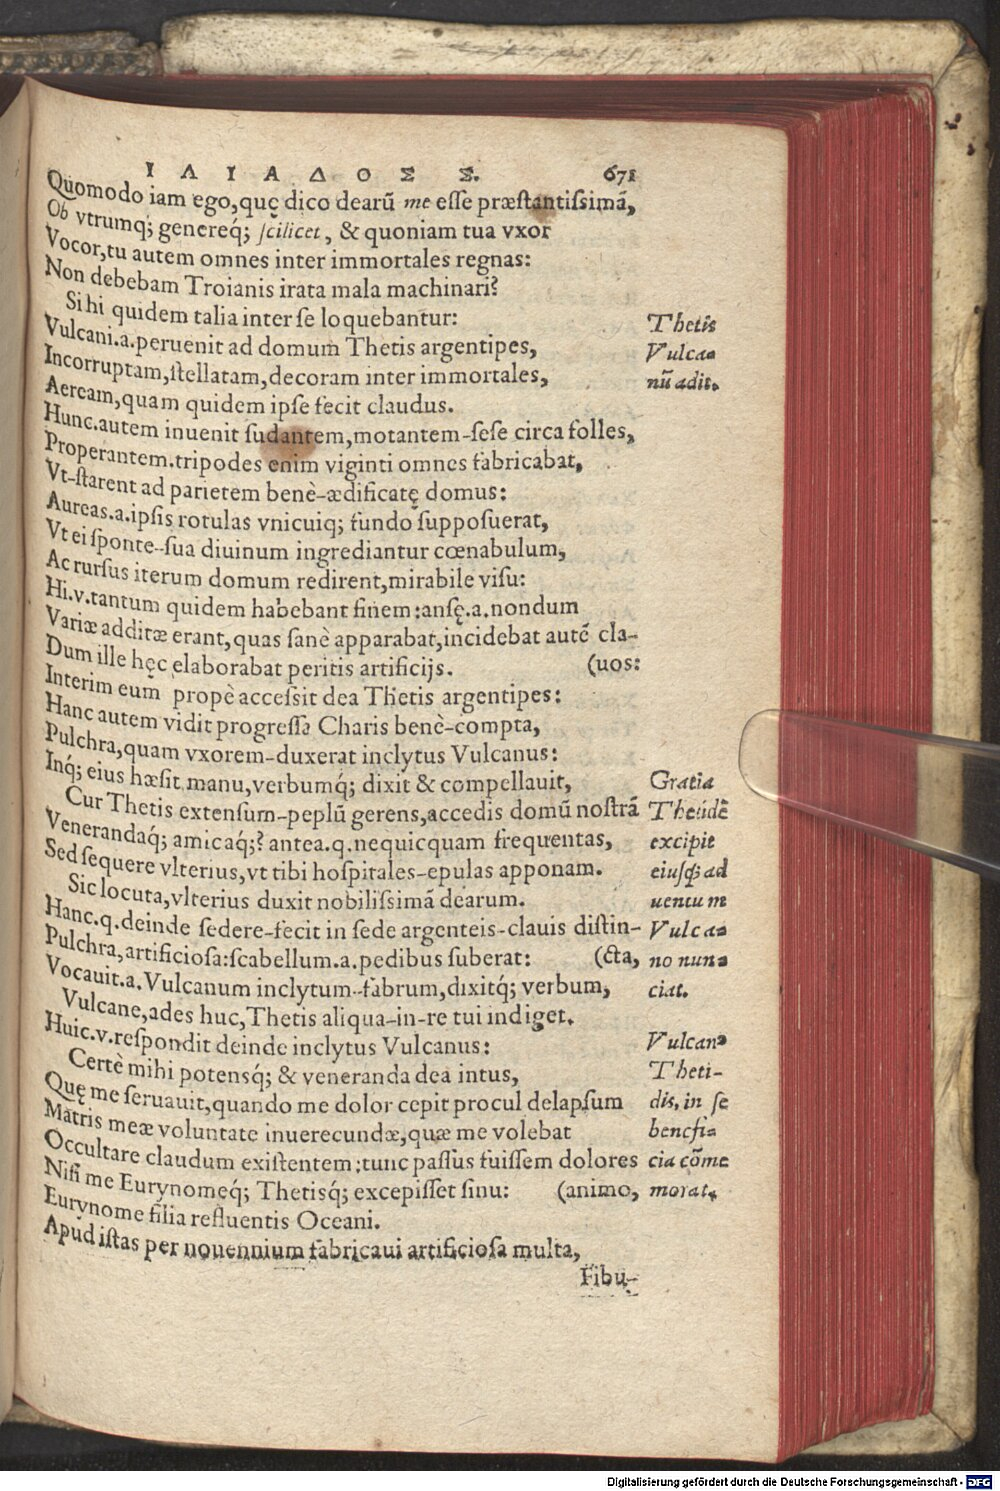 Ι Λ Ι Α Δ Ο Σ Σ. 671
Quomodo iam ego, quę dico dearũ me esse præstantissimã,
Ob vtrumq; genereq́; scilicet, & quoniam tua vxor
Vocor, tu autem omnes inter immortales regnas:
Non debebam Troianis irata mala machinari?
Si hi quidem talia inter se loquebantur:
Vulcani.a.peruenit ad domum Thetis argentipes,
Incorruptam, stellatam, decoram inter immortales,
Aeream, quam quidem ipse fecit claudus.
Hunc.autem inuenit sudantem, motantem-sese circa folles,
Properantem.tripodes enim viginti omnes fabricabat,
Vt-starent ad parietem benè-ædificatę domus:
Aureas.a.ipsis rotulas vnicuiq; fundo supposuerat,
Vt ei sponte-sua diuinum ingrediantur cœnabulum,
Ac rursus iterum domum redirent, mirabile visu:
Hi.v.tantum quidem habebant finem: ansę.a.nondum
Variæ additæ erant, quas sanè apparabat, incidebat autẽ cla-
Dum ille hęc elaborabat peritis artificijs. (uos:
Interim eum propè accessit dea Thetis argentipes:
Hanc autem vidit progressa Charis benè-compta,
Pulchra, quam vxorem-duxerat inclytus Vulcanus:
Inq́; eius hæsit manu, verbumq́; dixit & compellauit,
Cur Thetis extensum-peplũ gerens, accedis domũ nostrã
Venerandaq́; amicaq́;? antea.q.nequicquam frequentas,
Sed sequere vlterius, vt tibi hospitales-epulas apponam.
Sic locuta, vlterius duxit nobilissimã dearum.
Hanc.q.deinde sedere-fecit in sede argenteis-clauis distin-
Pulchra, artificiosa: scabellum.a.pedibus suberat: (cta,
Vocauit.a.Vulcanum inclytum-fabrum, dixitq́; verbum,
Vulcane, ades huc, Thetis aliqua-in-re tui indiget.
Huic.v.respondit deinde inclytus Vulcanus:
Certè mihi potensq́; & veneranda dea intus,
Quę me seruauit, quando me dolor cepit procul delapsum
Matris meæ voluntate inuerecundæ, quæ me volebat
Occultare claudum existentem: tunc passus fuissem dolores
Nisi me Eurynomeq́; Thetisq́; excepisset sinu: (animo,
Eurynome filia refluentis Oceani.
Apud istas per nouennium fabricaui artificiosa multa,
Fibu-
Thetis
Vulca-
nũ adit.
Gratia
Thetidẽ
excipit
eiusq́; ad
uentum
Vulca-
no nun-
ciat.
Vulcan9
Theti-
dis, in se
benefi-
cia cõme
morat.
Digitalisierung gefördert durch die Deutsche Forschungsgemeinschaft - DFG